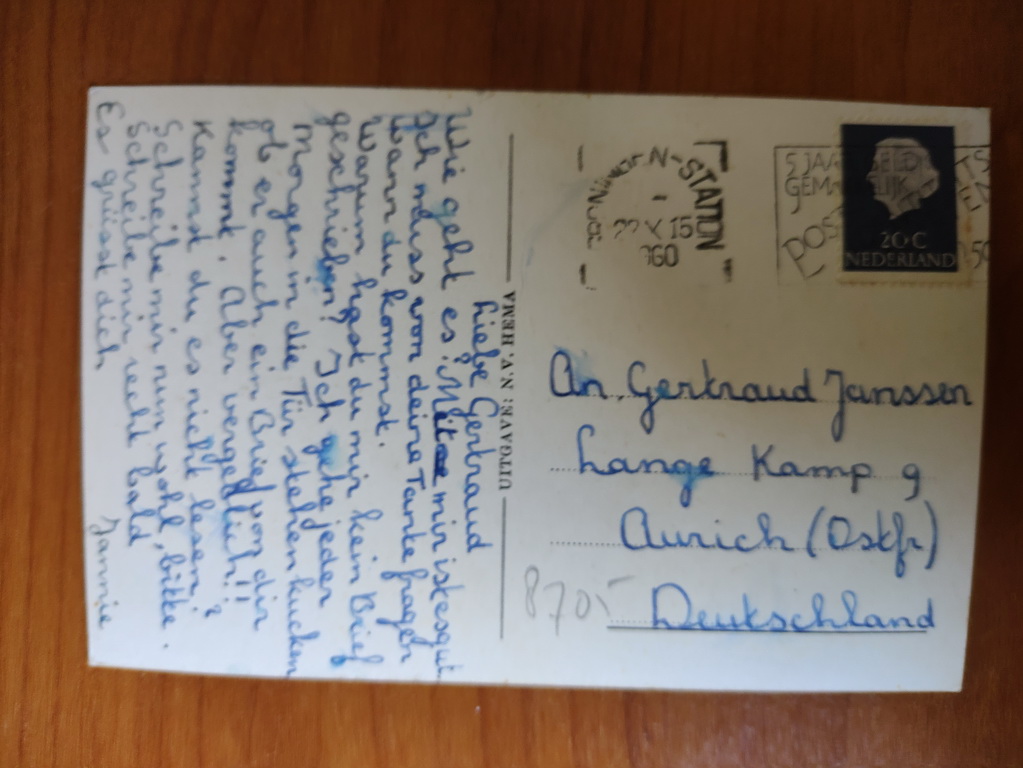 Liebe Gertraud
Wie geht es? Mit mir ist es gut.
Ich muss von deine Tante fragen
wann du kommst.
Warum hast du mir kein Brief
geschrieben? Ich gehe jeder
Morgen in die Tür stehen kucken
ob er auch ein Brief von dir
kommt. Aber vergeblich!!
Kannst du es nicht lesen?
Schreibe mir nun wohl, bitte.
Schreibe mir recht bald
Es grüsst dich
Jannie
UITGAVE: N.V. HEMA
N-STATION
X 15
1960
5 JAAR GELD
POS
20 C
NEDERLAND
An. Gertraud Janssen
Lange Kamp 9
Aurich (Ostfr)
Deutschland
870